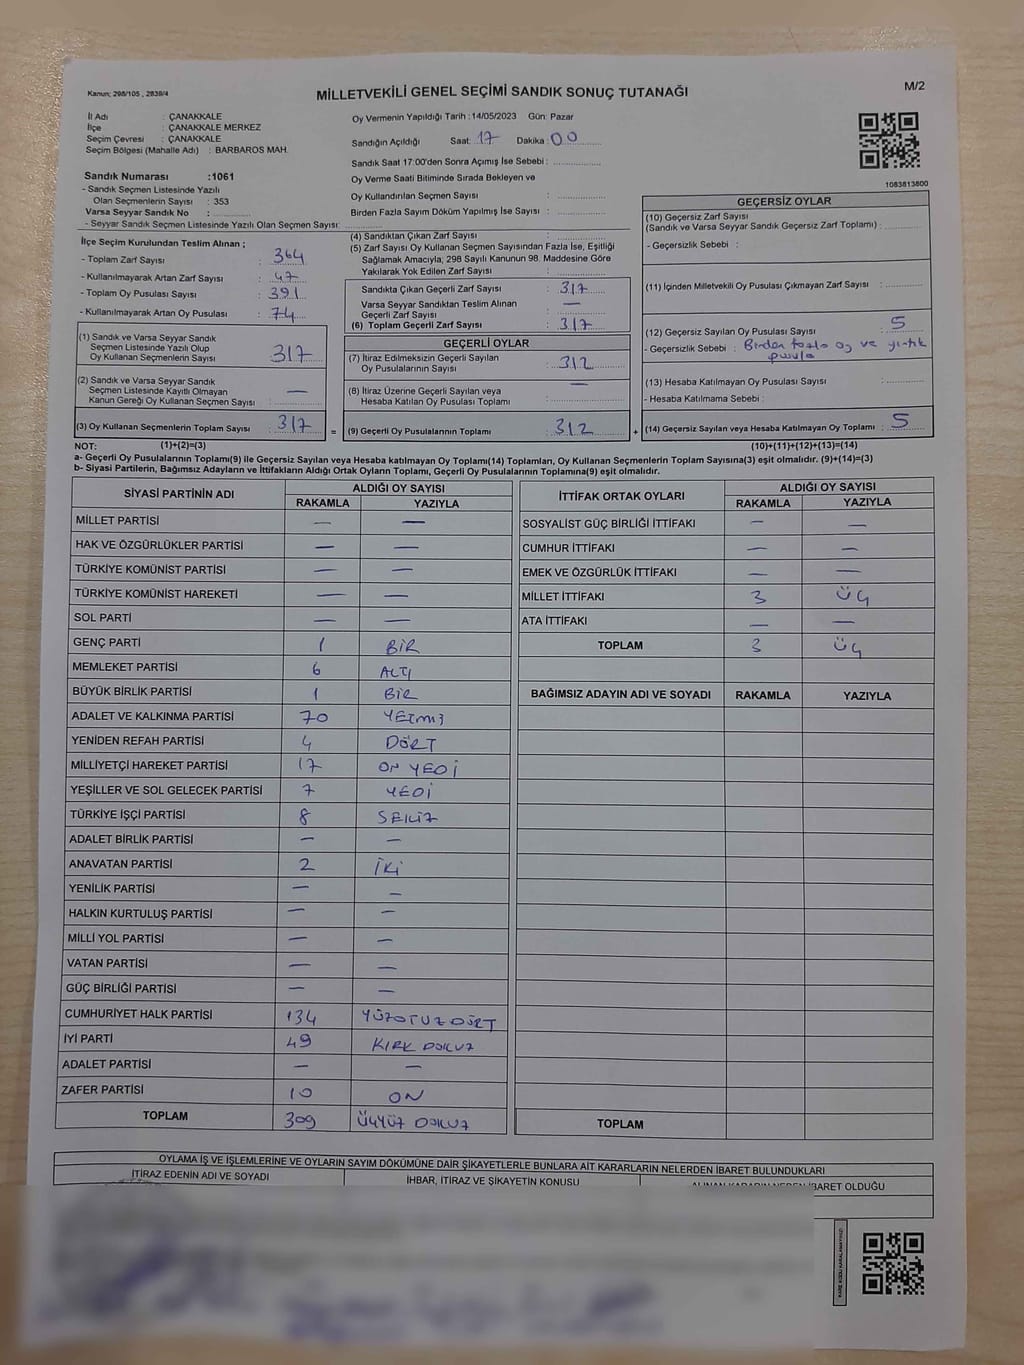 Kanun; 298/105 , 2839/4
MİLLETVEKİLİ GENEL SEÇİMİ SANDIK SONUÇ TUTANAĞI
M/2
İl Adı : ÇANAKKALE
İlçe : ÇANAKKALE MERKEZ
Seçim Çevresi : ÇANAKKALE
Seçim Bölgesi (Mahalle Adı) : BARBAROS MAH.
Sandık Numarası :1061
- Sandık Seçmen Listesinde Yazılı
Olan Seçmenlerin Sayısı : 353
Varsa Seyyar Sandık No :
- Seyyar Seçmen Listesinde Yazılı Olan Seçmen Sayısı:
Oy Vermenin Yapıldığı Tarih :14/05/2023 Gün: Pazar
Sandığın Açıldığı Saat: 17 Dakika: 00
Sandık Saat 17:00'den Sonra Açımış İse Sebebi :
Oy Verme Saati Bitiminde Sırada Bekleyen ve
Oy Kullandırılan Seçmen Sayısı :
Birden Fazla Sayım Döküm Yapılmış İse Sayısı :
1083813800
İlçe Seçim Kurulundan Teslim Alınan ;
- Toplam Zarf Sayısı : 364
- Kullanılmayarak Artan Zarf Sayısı : 47
- Toplam Oy Pusulası Sayısı : 391
- Kullanılmayarak Artan Oy Pusulası : 74
(1) Sandık ve Varsa Seyyar Sandık
Seçmen Listesinde Yazılı Olup
Oy Kullanan Seçmenlerin Sayısı : 317
(2) Sandık ve Varsa Seyyar Sandık
Seçmen Listesinde Kayıtlı Olmayan
Kanun Gereği Oy Kullanan Seçmen Sayısı : —
(3) Oy Kullanan Seçmenlerin Toplam Sayısı : 317
(4) Sandıktan Çıkan Zarf Sayısı :
(5) Zarf Sayısı Oy Kullanan Seçmen Sayısından Fazla İse, Eşitliği
Sağlamak Amacıyla; 298 Sayılı Kanunun 98. Maddesine Göre
Yakılarak Yok Edilen Zarf Sayısı :
Sandıkta Çıkan Geçerli Zarf Sayısı : 317
Varsa Seyyar Sandıktan Teslim Alınan
Geçerli Zarf Sayısı : —
(6) Toplam Geçerli Zarf Sayısı : 317
GEÇERLİ OYLAR
(7) İtiraz Edilmeksizin Geçerli Sayılan
Oy Pusulalarının Sayısı : 312
(8) İtiraz Üzerine Geçerli Sayılan veya
Hesaba Katılan Oy Pusulası Toplamı : —
= (9) Geçerli Oy Pusulalarının Toplamı : 312 +
GEÇERSİZ OYLAR
(10) Geçersiz Zarf Sayısı
(Sandık ve Varsa Seyyar Sandık Geçersiz Zarf Toplamı) :
- Geçersizlik Sebebi :
(11) İçinden Milletvekili Oy Pusulası Çıkmayan Zarf Sayısı :
(12) Geçersiz Sayılan Oy Pusulası Sayısı : 5
- Geçersizlik Sebebi : Birden fazla oy ve yırtık
pusula
(13) Hesaba Katılmayan Oy Pusulası Sayısı :
- Hesaba Katılmama Sebebi :
(14) Geçersiz Sayılan veya Hesaba Katılmayan Oy Toplamı : 5
NOT: (1)+(2)=(3) (10)+(11)+(12)+(13)=(14)
a- Geçerli Oy Pusulalarının Toplamı(9) ile Geçersiz Sayılan veya Hesaba katılmayan Oy Toplamı(14) Toplamları, Oy Kullanan Seçmenlerin Toplam Sayısına(3) eşit olmalıdır. (9)+(14)=(3)
b- Siyasi Partilerin, Bağımsız Adayların ve İttifakların Aldığı Ortak Oyların Toplamı, Geçerli Oy Pusulalarının Toplamına(9) eşit olmalıdır.
SİYASİ PARTİNİN ADI ALDIĞI OY SAYISI
RAKAMLA YAZIYLA
MİLLET PARTİSİ — —
HAK VE ÖZGÜRLÜKLER PARTİSİ — —
TÜRKİYE KOMÜNİST PARTİSİ — —
TÜRKİYE KOMÜNİST HAREKETİ — —
SOL PARTİ — —
GENÇ PARTİ 1 BİR
MEMLEKET PARTİSİ 6 ALTI
BÜYÜK BİRLİK PARTİSİ 1 BİR
ADALET VE KALKINMA PARTİSİ 70 YETMİŞ
YENİDEN REFAH PARTİSİ 4 DÖRT
MİLLİYETÇİ HAREKET PARTİSİ 17 ON YEDİ
YEŞİLLER VE SOL GELECEK PARTİSİ 7 YEDİ
TÜRKİYE İŞÇİ PARTİSİ 8 SEKİZ
ADALET BİRLİK PARTİSİ — —
ANAVATAN PARTİSİ 2 İKİ
YENİLİK PARTİSİ — —
HALKIN KURTULUŞ PARTİSİ — —
MİLLİ YOL PARTİSİ — —
VATAN PARTİSİ — —
GÜÇ BİRLİĞİ PARTİSİ — —
CUMHURİYET HALK PARTİSİ 134 YÜZOTUZDÖRT
İYİ PARTİ 49 KIRK DOKUZ
ADALET PARTİSİ — —
ZAFER PARTİSİ 10 ON
TOPLAM 309 ÜÇYÜZ DOKUZ
İTTİFAK ORTAK OYLARI ALDIĞI OY SAYISI
RAKAMLA YAZIYLA
SOSYALİST GÜÇ BİRLİĞİ İTTİFAKI — —
CUMHUR İTTİFAKI — —
EMEK VE ÖZGÜRLÜK İTTİFAKI — —
MİLLET İTTİFAKI 3 ÜÇ
ATA İTTİFAKI — —
TOPLAM 3 ÜÇ
BAĞIMSIZ ADAYIN ADI VE SOYADI RAKAMLA YAZIYLA
TOPLAM
OYLAMA İŞ VE İŞLEMLERİNE VE OYLARIN SAYIM DÖKÜMÜNE DAİR ŞİKAYETLERLE BUNLARA AİT KARARLARIN NELERDEN İBARET BULUNDUKLARI
İTİRAZ EDENİN ADI VE SOYADI İHBAR, İTİRAZ VE ŞİKAYETİN KONUSU ALINAN KARARIN NEDEN İBARET OLDUĞU
KARE KODU KARALAMAYINIZ!